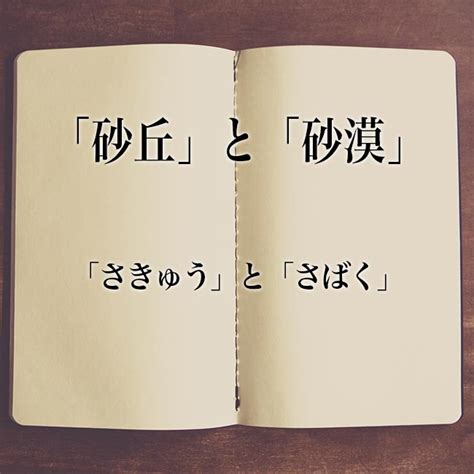 「砂丘」と「砂漠」
「さきゅう」と「さばく」